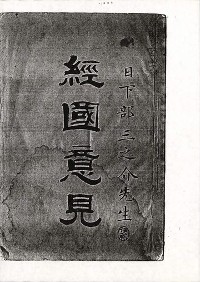 日下部三之介先生
經國意見